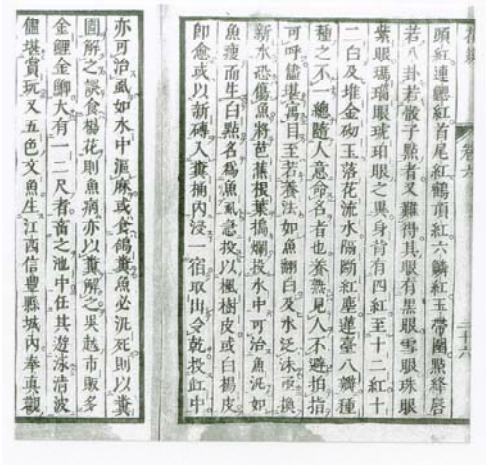 花鏡 卷六 二十六
頭紅連鰓紅首尾紅鶴頂紅六鱗紅玉帶圍點絳唇
若八卦若骰子點者又難得其眼有黑眼雪眼珠眼
紫眼瑪瑙眼琥珀眼之異身背有四紅至十二紅十
二白及堆金砌玉落花流水隔斷紅塵蓮臺八瓣種
種之不一總隨人意命名者也養熟見人不避拍指
可呼儘堪寓目至若養法如魚翻白及水泛沫亟換
新水恐傷魚將芭蕉根葉搗爛投水中可治魚泛如
魚瘦而生白點名為魚虱急投以楓樹皮或白楊皮
即愈或以新磚入糞桶內浸一宿取出令乾投缸中
亦可治虱如水中漚麻或食鴿糞魚必泛死則以糞
圊解之誤食楊花則魚病亦以糞解之吳越市販多
金鯉金鯽大有一二尺者畜之池中任其遊泳清波
儘堪賞玩又五色文魚生江西信豐縣城內奉真觀